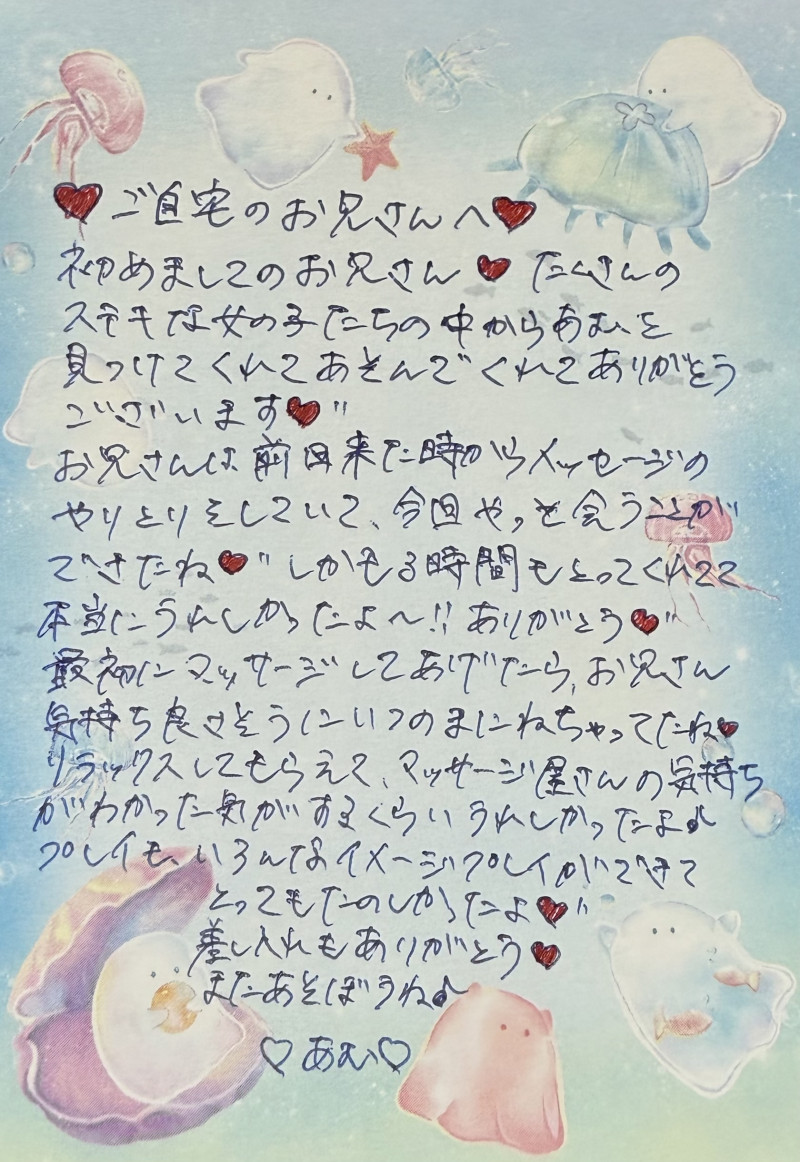 ♥ご自宅のお兄さんへ♥
初めましてのお兄さん♥たくさんの
ステキな女の子たちの中からあむを
見つけてくれてあそんでくれてありがとう
ございます♥"
お兄さんは前回来た時からメッセージの
やりとりをしていて、今回やっと会うことが
できたね♥"しかも3時間もとってくれてて
本当にうれしかったよ〜!!ありがとう♥"
最初にマッサージしてあげたら、お兄さん
気持ち良さそうにいつのまにねちゃってたね♥
リラックスしてもらえて、マッサージ屋さんの気持ち
がわかった気がするくらいうれしかったよ♪
プレイも、いろんなイメージプレイができて
とってもたのしかったよ♥"
差し入れもありがとう♥
またあそぼうね♪
♡あむ♡